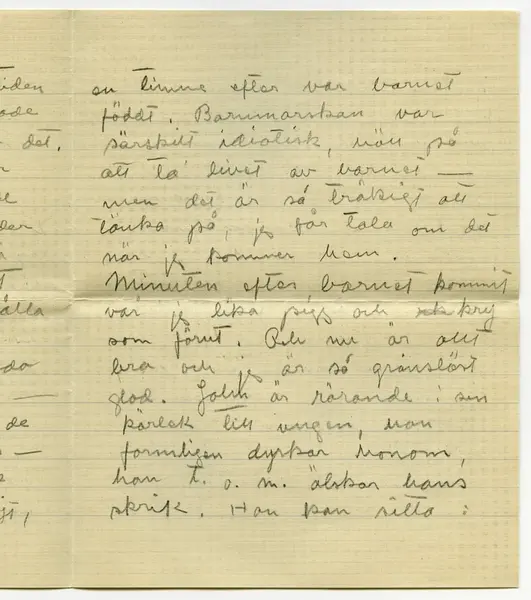 en timme efter var barnet
födt. Barnmorskan var
särskilt idiotisk, höll på
att ta' livet av barnet —
men det är så tråkigt att
tänka på, jeg får tala om det
när jeg kommer hem.
Minuten efter barnet kommit
var jeg lika pigg och kry
som förut. Och nu är allt
bra och jeg är så gränslöst
glad. John är rörande i sin
kärlek till ungen, han
formligen dyrkar honom,
han t. o. m. älskar hans
skrik. Han kan sitta i
iden
ade
det.
der
ålla
de